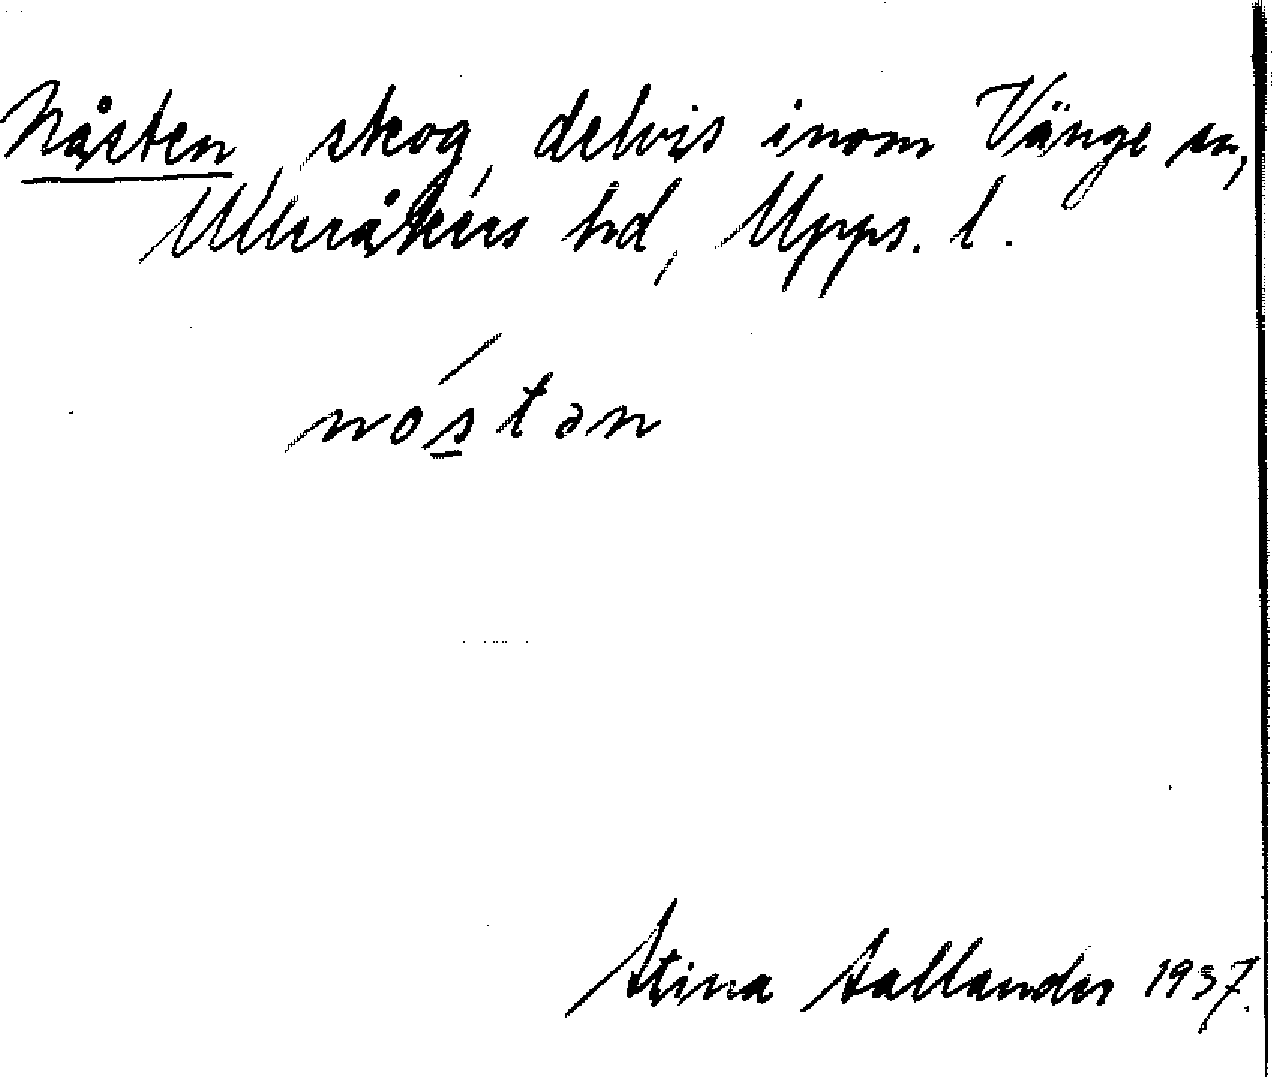 Nåsten, skog, delvis inom Vänge sn,
Ulleråkers hd, Upps. l.
nóstən
Stina Sallander 1937.